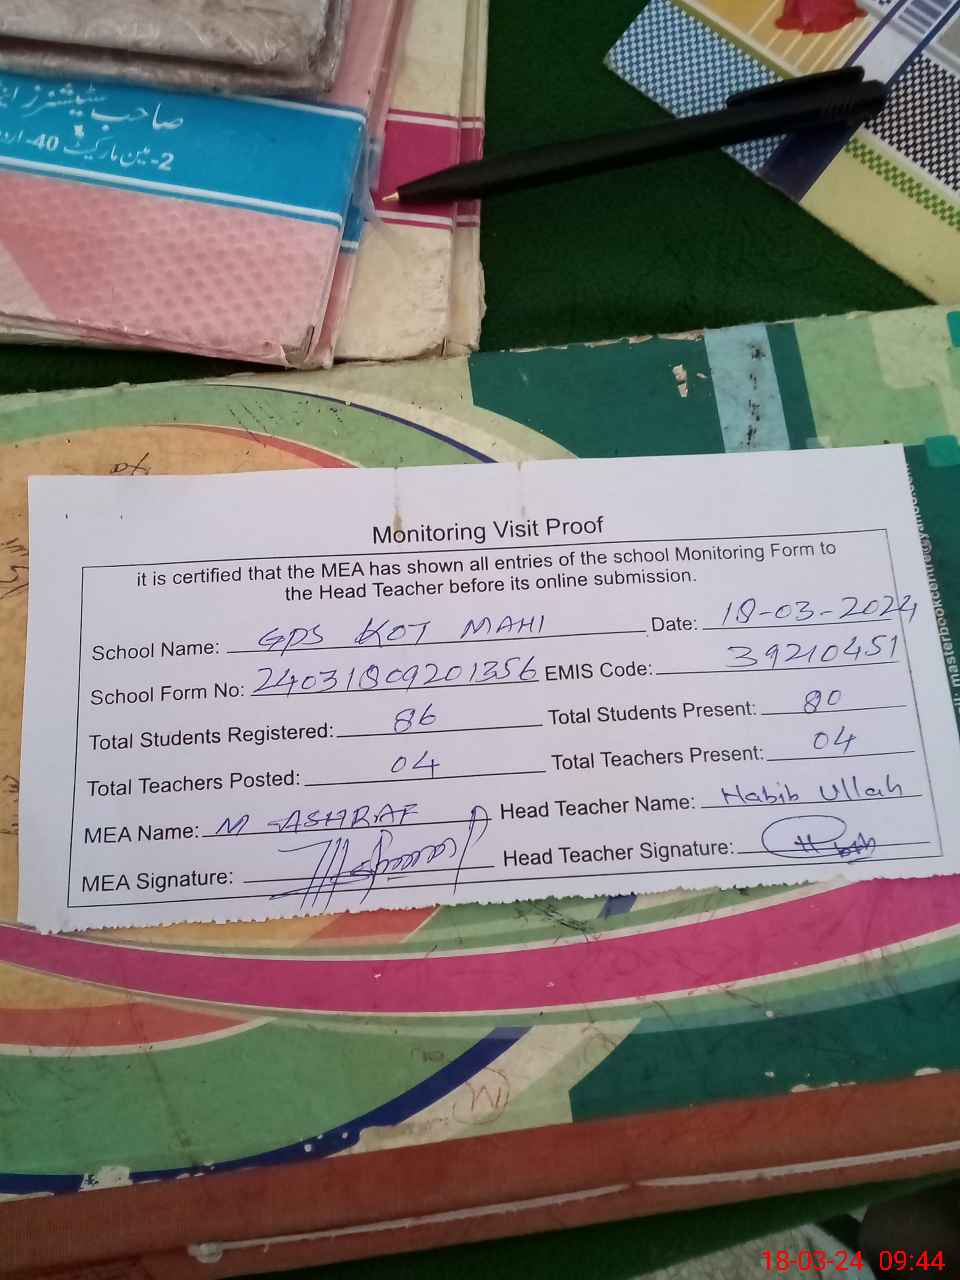 صاحب سٹیشنرز اینڈ
2-مین مارکیٹ 40-اردو
Monitoring Visit Proof
it is certified that the MEA has shown all entries of the school Monitoring Form to
the Head Teacher before its online submission.
School Name: GPS KOT MAHI Date: 18-03-2024
School Form No: 24031809201356 EMIS Code: 39210451
Total Students Registered: 86 Total Students Present: 80
Total Teachers Posted: 04 Total Teachers Present: 04
MEA Name: M ASHRAF Head Teacher Name: Habib Ullah
MEA Signature: Head Teacher Signature:
masterbookcentre@yahoo.com
18-03-24 09:44